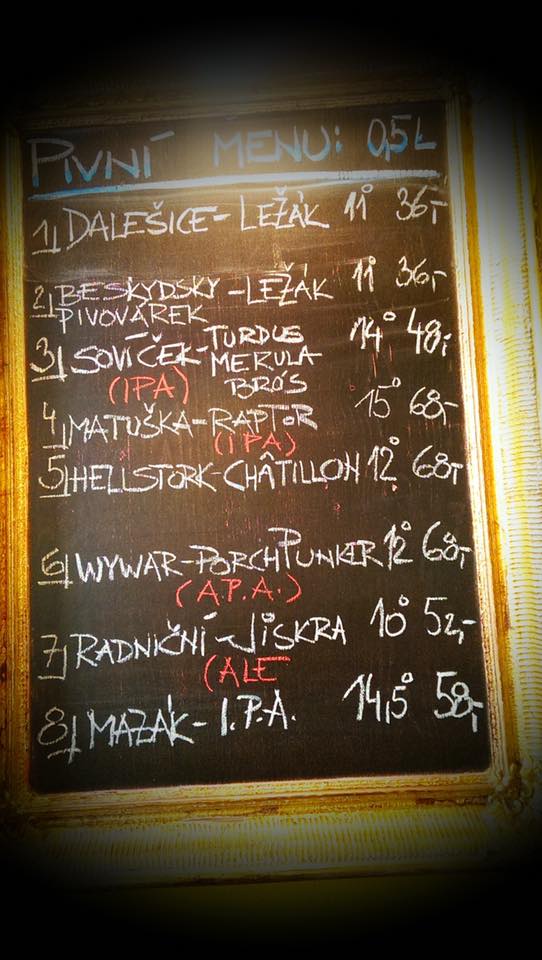 PIVNÍ MENU: 0,5L
1) DALEŠICE - LEŽÁK 11° 36,-
2) BESKYDSKY - LEŽÁK 11° 36,-
PIVOVÁREK
3) SOVÍČEK - TURDUS 14° 48,-
MERULA
(IPA) BRO'S
4) MATUŠKA - RAPTOR 15° 68,-
(IPA)
5) HELLSTORK - CHÂTILLON 12° 68,-
6) WYWAR - PORCHPUNKER 12° 68,-
(A.P.A.)
7) RADNIČNÍ - JISKRA 10° 52,-
(ALE
8) MAZÁK - I.P.A. 14,5° 58,-